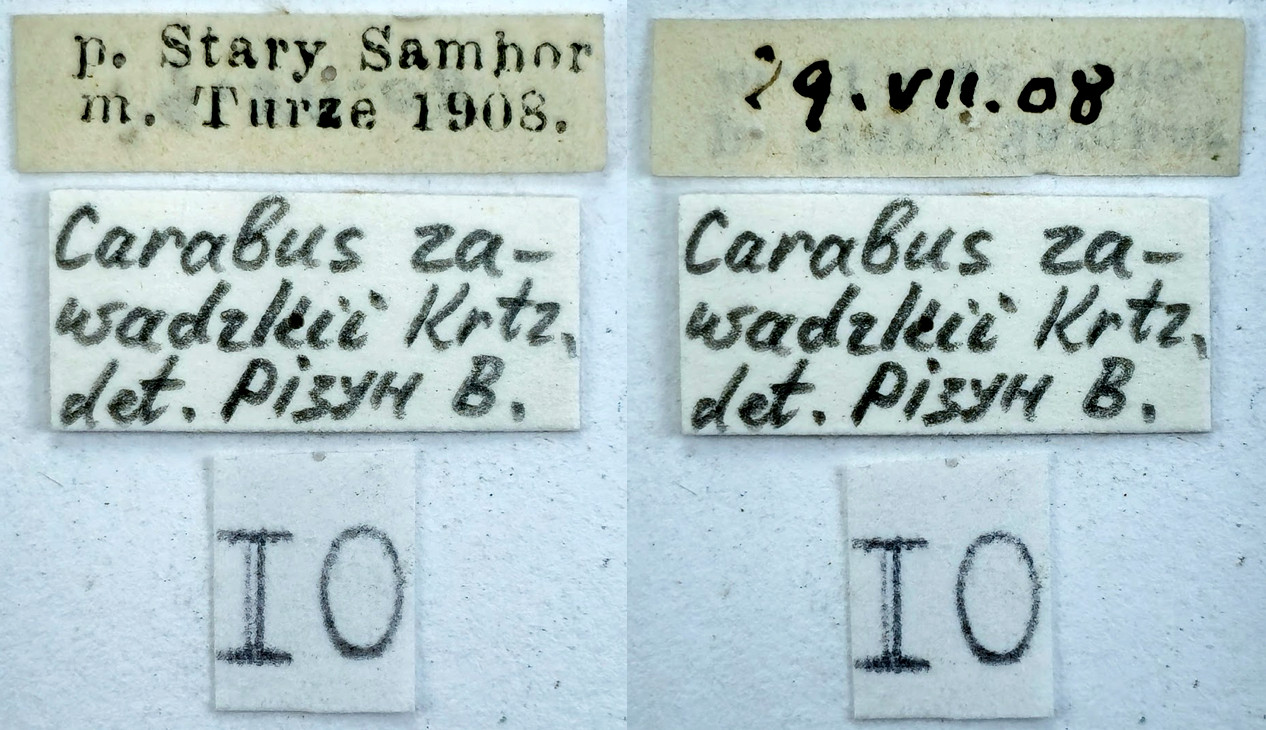 p. Stary Sambor
m. Turze 1908.
Carabus za-
wadzkii Krtz.
det. Різун В.
IO
29.VII.08
Carabus za-
wadzkii Krtz.
det. Різун В.
IO